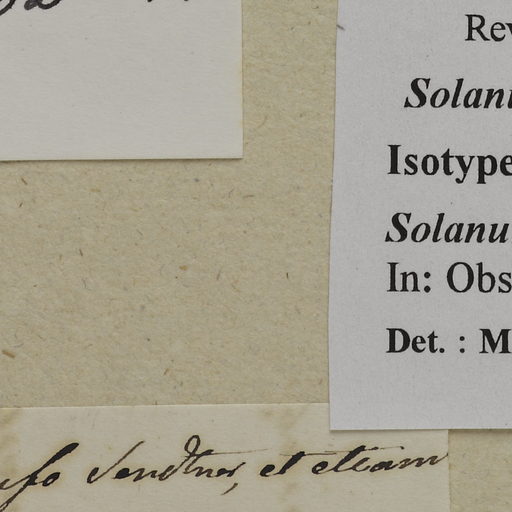 Rev
Solanu
Isotype
Solanu
In: Obs
Det. : M
Sendtner, et etiam